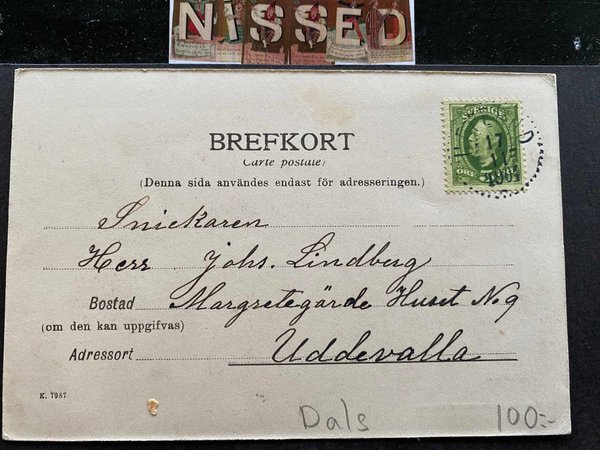 NISSED
BREFKORT
Carte postale)
(Denna sida användes endast för adresseringen.)
SVERIGE
ÖRE
17
11
1904
D
Snickaren
Herr Johs. Lindberg
Bostad Margretegärde Huset No 9
(om den kan uppgifvas)
Adressort Uddevalla
K. 7987
Dals 100:-